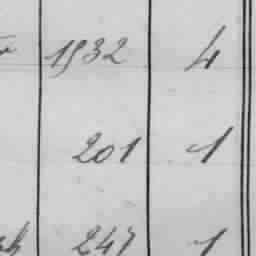 1932 4
201 1
247 1